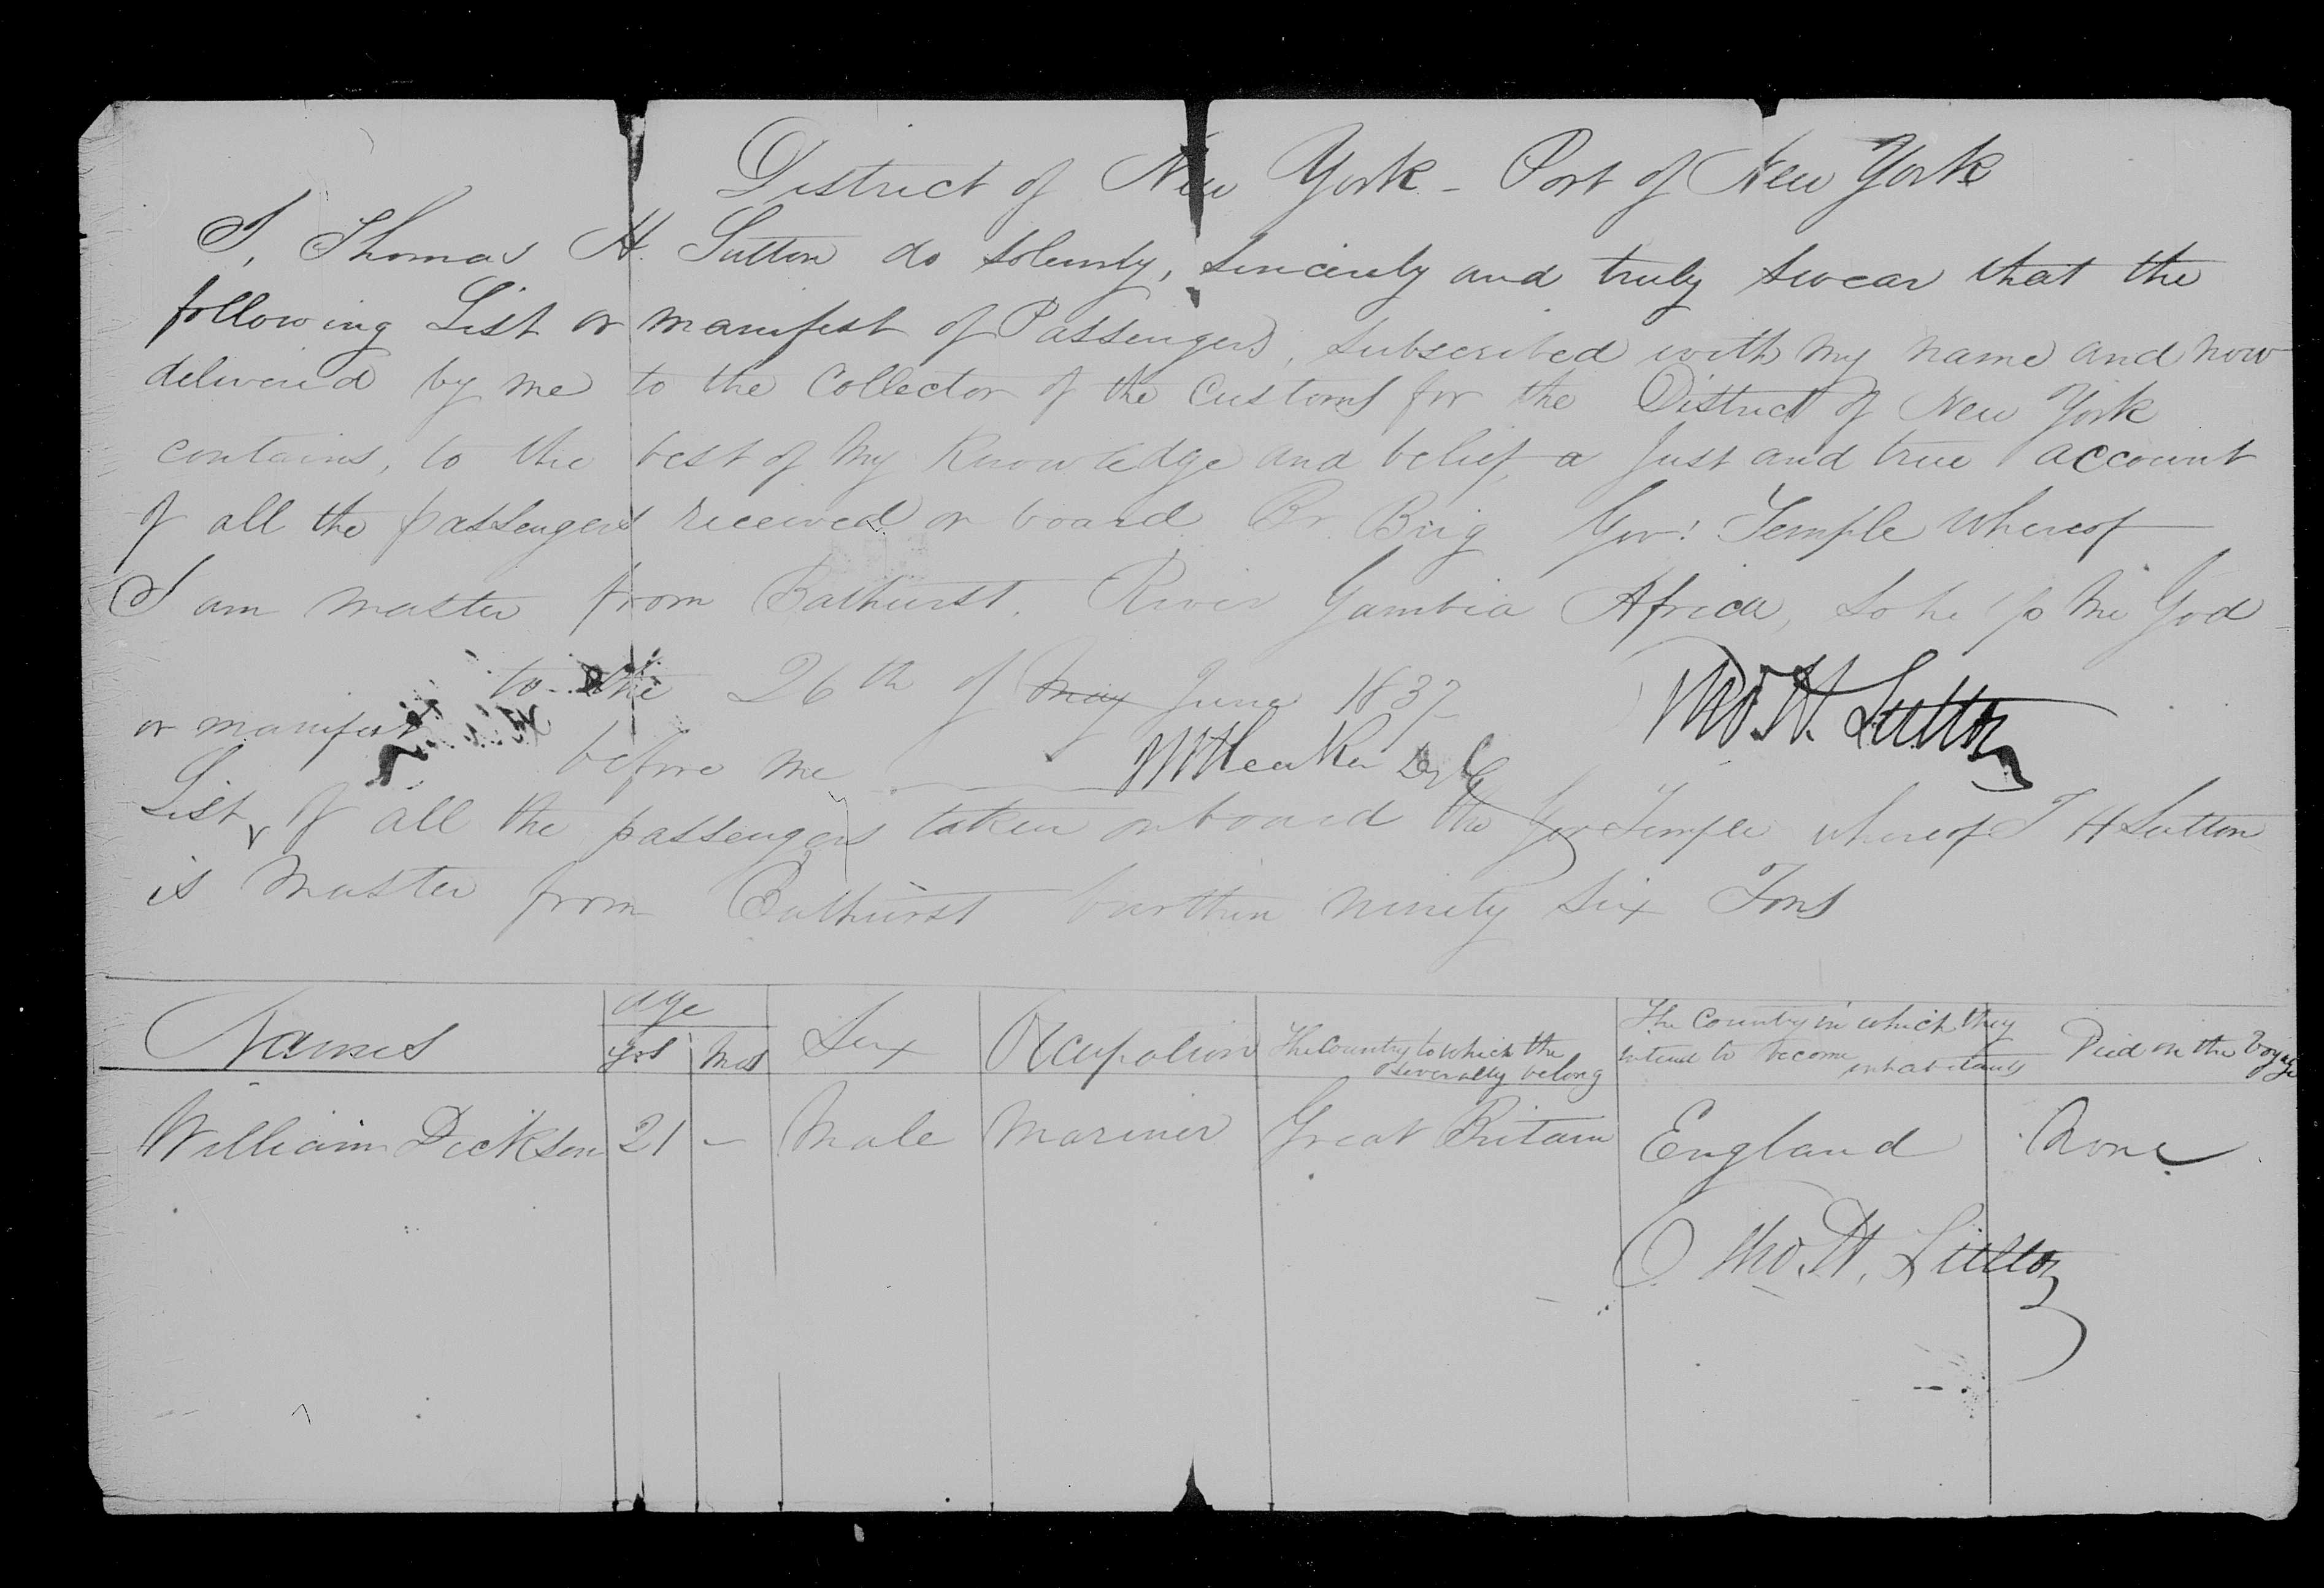 District of New York - Port of New York
I, Thomas H. Sutton do solemnly, sincerely and truly swear that the
following List or manifest of Passengers, subscribed with my name and now
delivered by me to the Collector of the Customs for the District of New York
contains, to the best of my knowledge and belief, a just and true account
of all the passengers received on board Br. Brig Govr. Temple whereof
I am master from Bathurst. River Gambia Africa, so help me God
to the 26th of may June 1837
Tho. H. Sutton
before me
or manifest
List of all the passengers taken on board the Gov Temple whereof T H Sutton
is Master from Bathurst burthen ninety six Tons
Names age yrs Mos Sex Occupation The Country to which the severally belong The Country in which they intend to become inhabitants Died on the Voyage
William Dickson 21 - Male Mariner Great Britain England None
Tho. H. Sutton